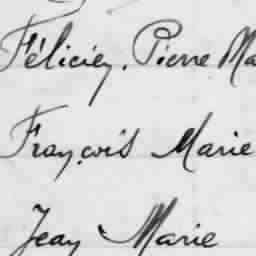 Félicien, Pierre Ma
François Marie
Jean Marie